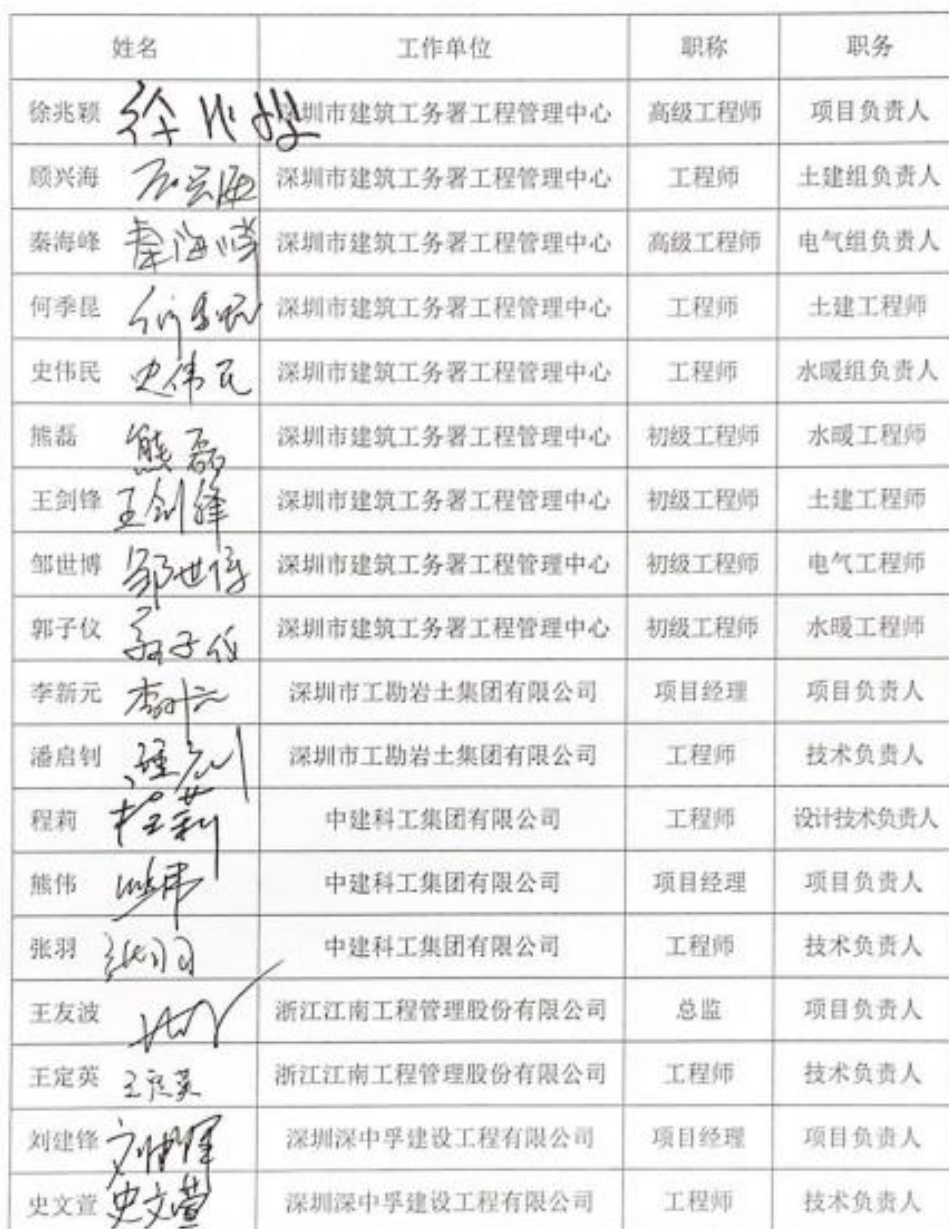 姓名 工作单位 职称 职务
徐兆颖 徐兆颖 深圳市建筑工务署工程管理中心 高级工程师 项目负责人
顾兴海 顾兴海 深圳市建筑工务署工程管理中心 工程师 土建组负责人
秦海峰 秦海峰 深圳市建筑工务署工程管理中心 高级工程师 电气组负责人
何季昆 何季昆 深圳市建筑工务署工程管理中心 工程师 土建工程师
史伟民 史伟民 深圳市建筑工务署工程管理中心 工程师 水暖组负责人
熊磊 熊磊 深圳市建筑工务署工程管理中心 初级工程师 水暖工程师
王剑锋 王剑锋 深圳市建筑工务署工程管理中心 初级工程师 土建工程师
邹世博 邹世博 深圳市建筑工务署工程管理中心 初级工程师 电气工程师
郭子仪 郭子仪 深圳市建筑工务署工程管理中心 初级工程师 水暖工程师
李新元 深圳市工勘岩土集团有限公司 项目经理 项目负责人
潘启钊 深圳市工勘岩土集团有限公司 工程师 技术负责人
程莉 程莉 中建科工集团有限公司 工程师 设计技术负责人
熊伟 熊伟 中建科工集团有限公司 项目经理 项目负责人
张羽 张羽 中建科工集团有限公司 工程师 技术负责人
王友波 浙江江南工程管理股份有限公司 总监 项目负责人
王定英 王定英 浙江江南工程管理股份有限公司 工程师 技术负责人
刘建锋 刘建锋 深圳深中孚建设工程有限公司 项目经理 项目负责人
史文萱 史文萱 深圳深中孚建设工程有限公司 工程师 技术负责人